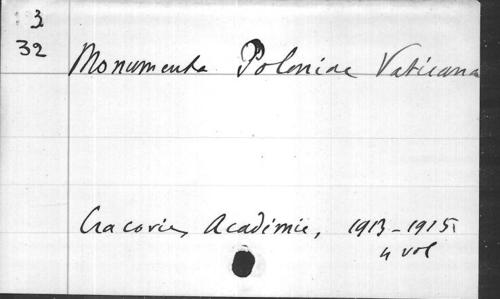 3
32
Monumenta Poloniae Vaticana
Cracovie, Académie, 1913-1915
4 vol